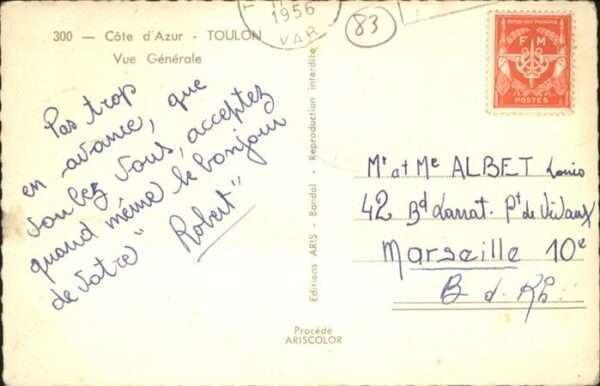 300 — Côte d'Azur - TOULON
Vue Générale
1956
VAR
83
RÉPUBLIQUE FRANÇAISE
F M
POSTES
Pas trop
en avance, que
voulez vous, acceptez
quand même le bonjour
de votre "Robert"
Editions ARIS - Bandol - Reproduction interdite
Mr et Me ALBET Louis
42 Bd Larrat. Pt de Vivaux
Marseille 10e
B. d. Rh.
Procédé
ARISCOLOR